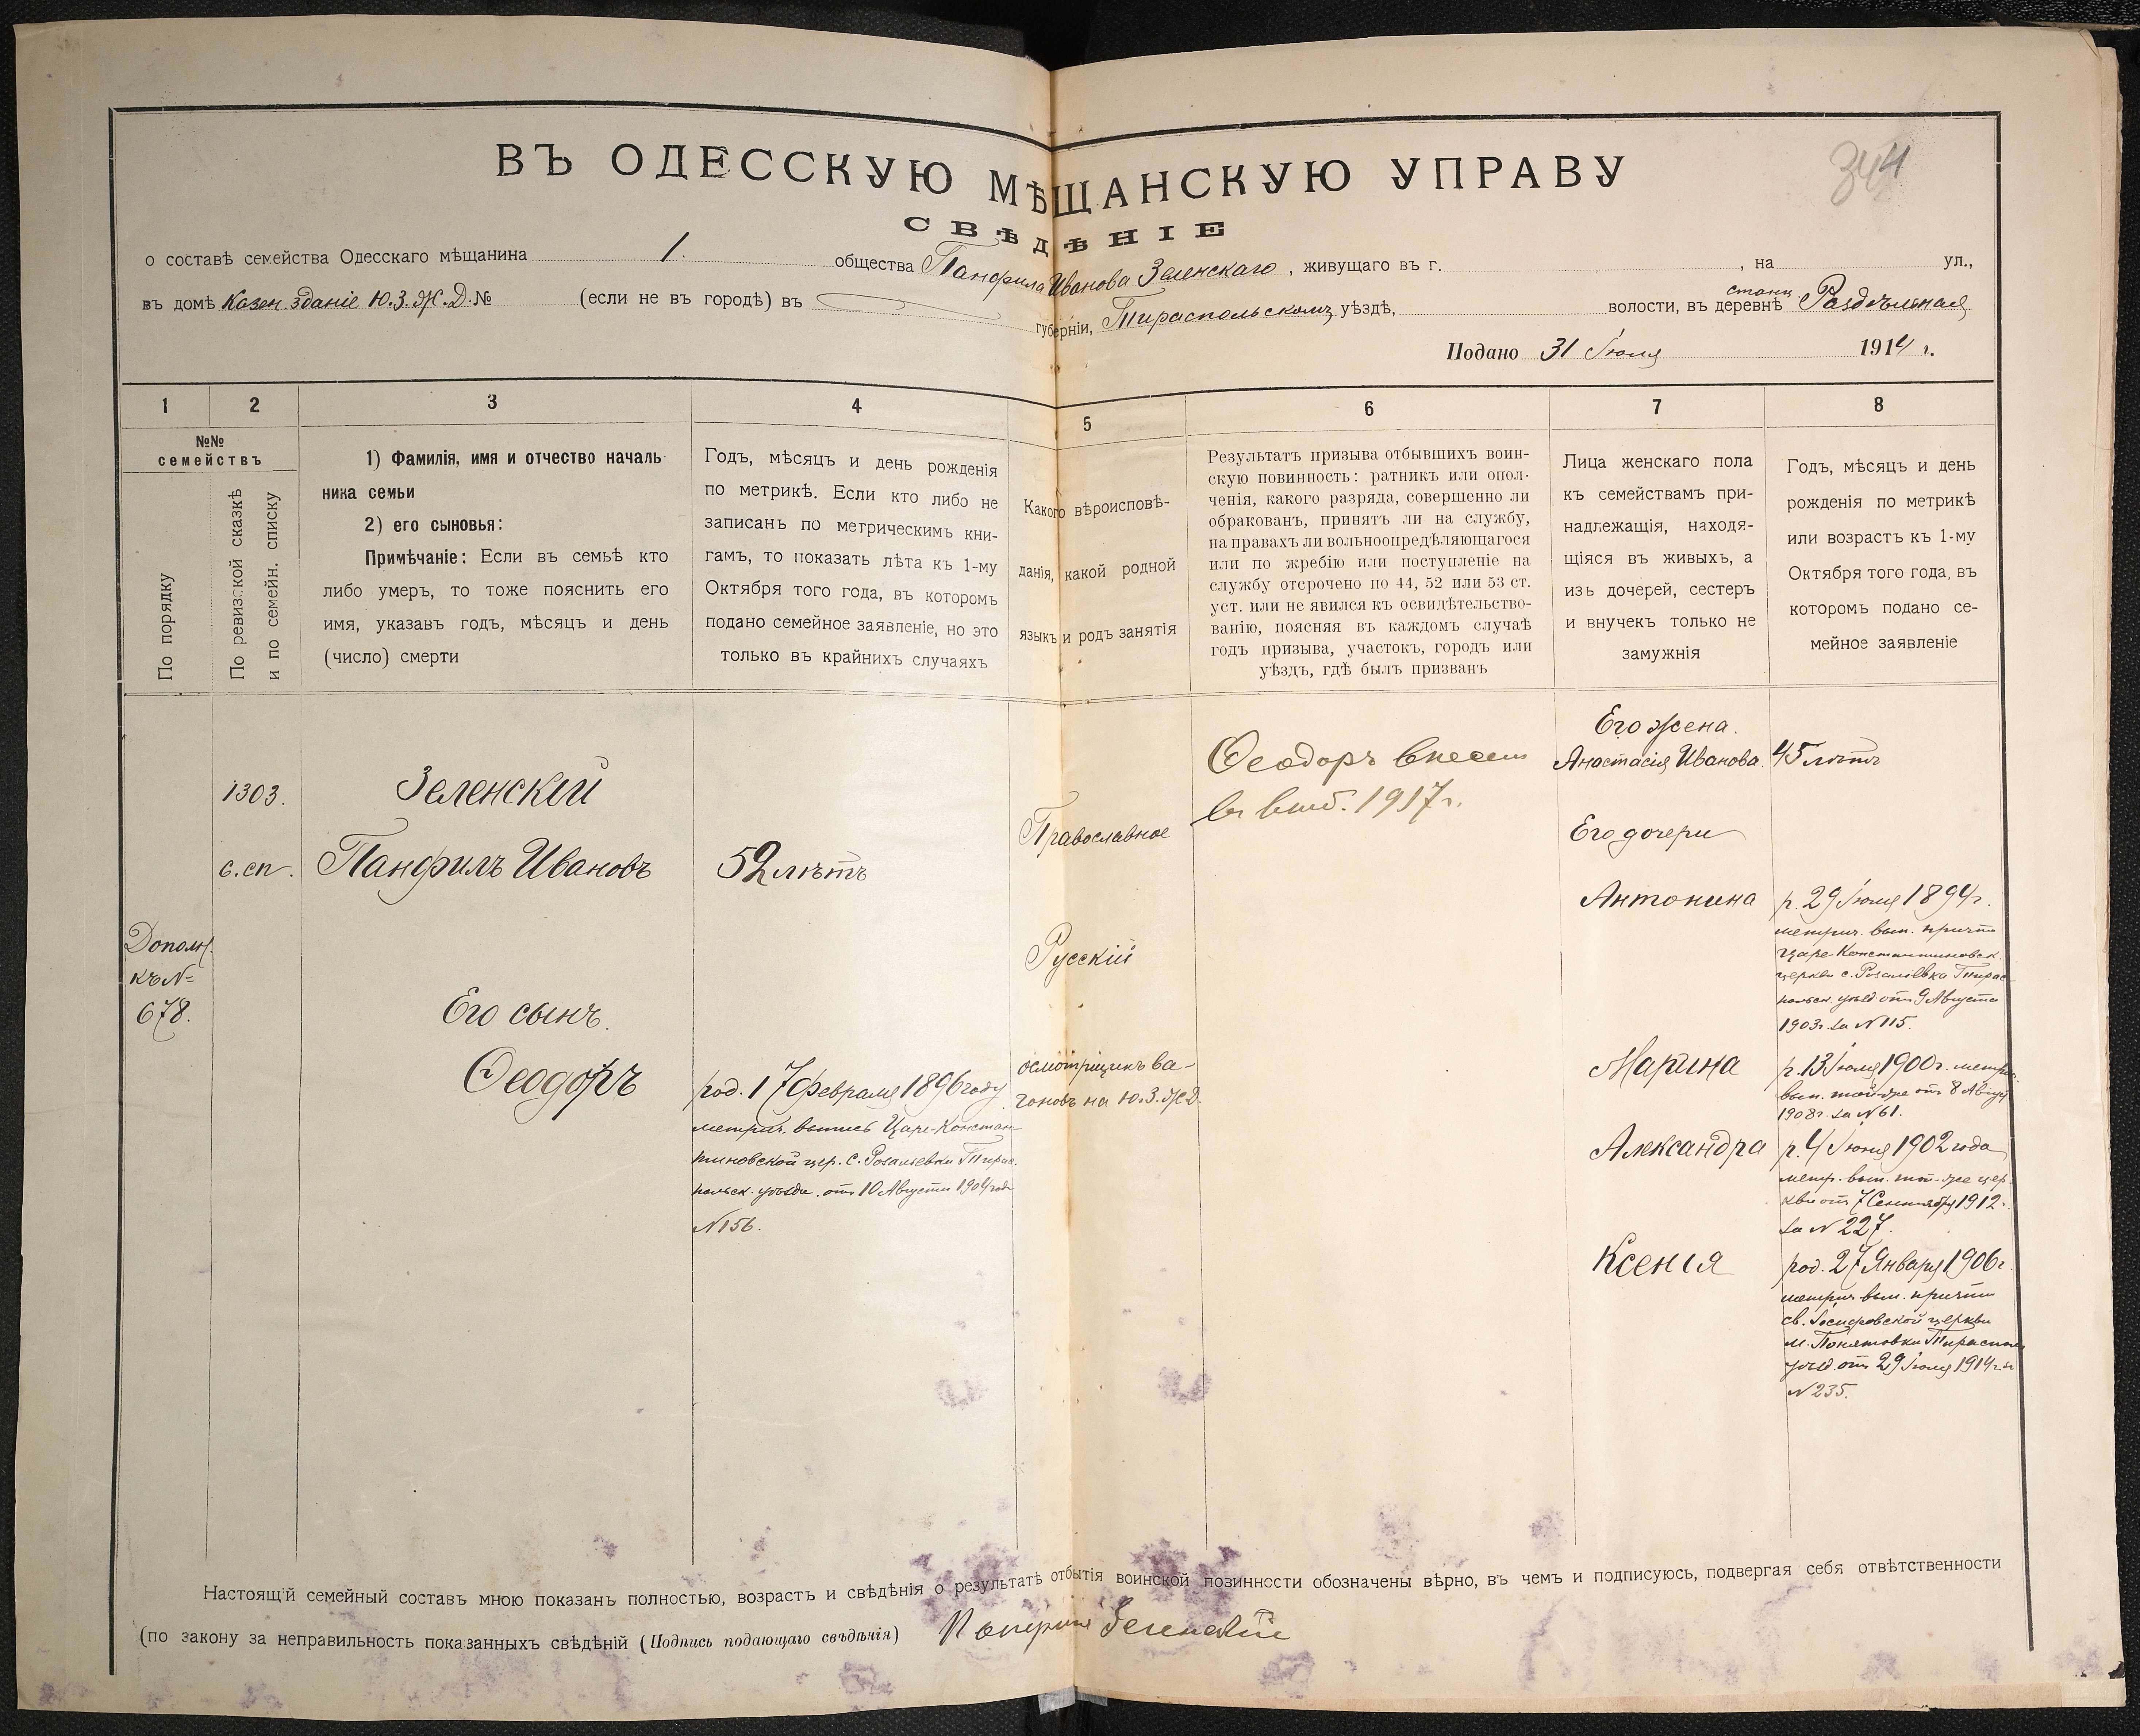 344
ВЪ ОДЕССКУЮ МѢЩАНСКУЮ УПРАВУ
СВѢДѢНІЕ
о составѣ семейства Одесскаго мѣщанина 1. общества Панфила Иванова Зеленскаго, живущаго въ г. , на ул.,
въ домѣ Казен. зданіе Ю.З.Ж.Д. № (если не въ городѣ) въ губерніи, Тираспольскомъ уѣздѣ, волости, въ деревнѣ станц Раздѣльная
Подано 31 Іюля 1914 г.
1
2
3
4
5
6
7
8
№№
семействъ
По порядку
По ревизской сказкѣ
и по семейн. списку
1) Фамилія, имя и отчество началь-
ника семьи
2) его сыновья:
Примѣчаніе: Если въ семьѣ кто
либо умеръ, то тоже пояснить его
имя, указавъ годъ, мѣсяцъ и день
(число) смерти
Годъ, мѣсяцъ и день рожденія
по метрикѣ. Если кто либо не
записанъ по метрическимъ кни-
гамъ, то показать лѣта къ 1-му
Октября того года, въ которомъ
подано семейное заявленіе, но это
только въ крайнихъ случаяхъ
Какого вѣроисповѣ-
данія, какой родной
языкъ и родъ занятія
Результатъ призыва отбывшихъ воин-
скую повинность: ратникъ или опол-
ченія, какого разряда, совершенно ли
обракованъ, принятъ ли на службу,
на правахъ ли вольноопредѣляющагося
или по жребію или поступленіе на
службу отсрочено по 44, 52 или 53 ст.
уст. или не явился къ освидѣтельство-
ванію, поясняя въ каждомъ случаѣ
годъ призыва, участокъ, городъ или
уѣздъ, гдѣ былъ призванъ
Лица женскаго пола
къ семействамъ при-
надлежащія, находя-
щіяся въ живыхъ, а
изъ дочерей, сестеръ
и внучекъ только не
замужнія
Годъ, мѣсяцъ и день
рожденія по метрикѣ
или возрастъ къ 1-му
Октября того года, въ
которомъ подано се-
мейное заявленіе
Дополн.
къ №
678.
1303.
с. сп.
Зеленскій
Панфилъ Ивановъ
Его сынъ.
Ѳеодоръ
52 лѣтъ
род. 17 февраля 1896 году
метрич. выпись Царе-Констан-
тиновской цер. с. Розаліевки Тирас-
польск. уѣзда. отъ 10 Августа 1904 года
№ 156.
Православное
Русскій
осмотрщикъ ва-
гоновъ на Ю.З.Ж.Д.
Ѳеодоръ внесен
в 1917 г.
Его жена.
Анастасія Иванова.
Его дочери
Антонина
Марина
Александра
Ксенія
45 лѣтъ
р. 29 Іюля 1894 г.
метрич. вып. причта
Царе-Константиновск.
церкви с. Розаліевка Тирас-
польск. уѣзд. отъ 9 Августа
1903 г. за № 115.
р. 13 Іюля 1900 г. метрич.
вып. той-же отъ 8 Авгус
1908 г. за № 61.
р. 4 Іюня 1902 года
метр. вып. той-же цер-
кви отъ 7 Сентября 1912 г.
за № 227.
род. 27 Января 1906 г.
метрич. вып. причта
св. Іосифовской церкви
м. Понятовки Тираспол
уѣзд. отъ 29 Іюля 1914 г. за
№ 235.
Настоящій семейный составъ мною показанъ полностью, возрастъ и свѣдѣнія о результатѣ отбытія воинской повинности обозначены вѣрно, въ чемъ и подписуюсь, подвергая себя отвѣтственности
(по закону за неправильность показанныхъ свѣдѣній (Подпись подающаго свѣдѣнія) Зеленскій